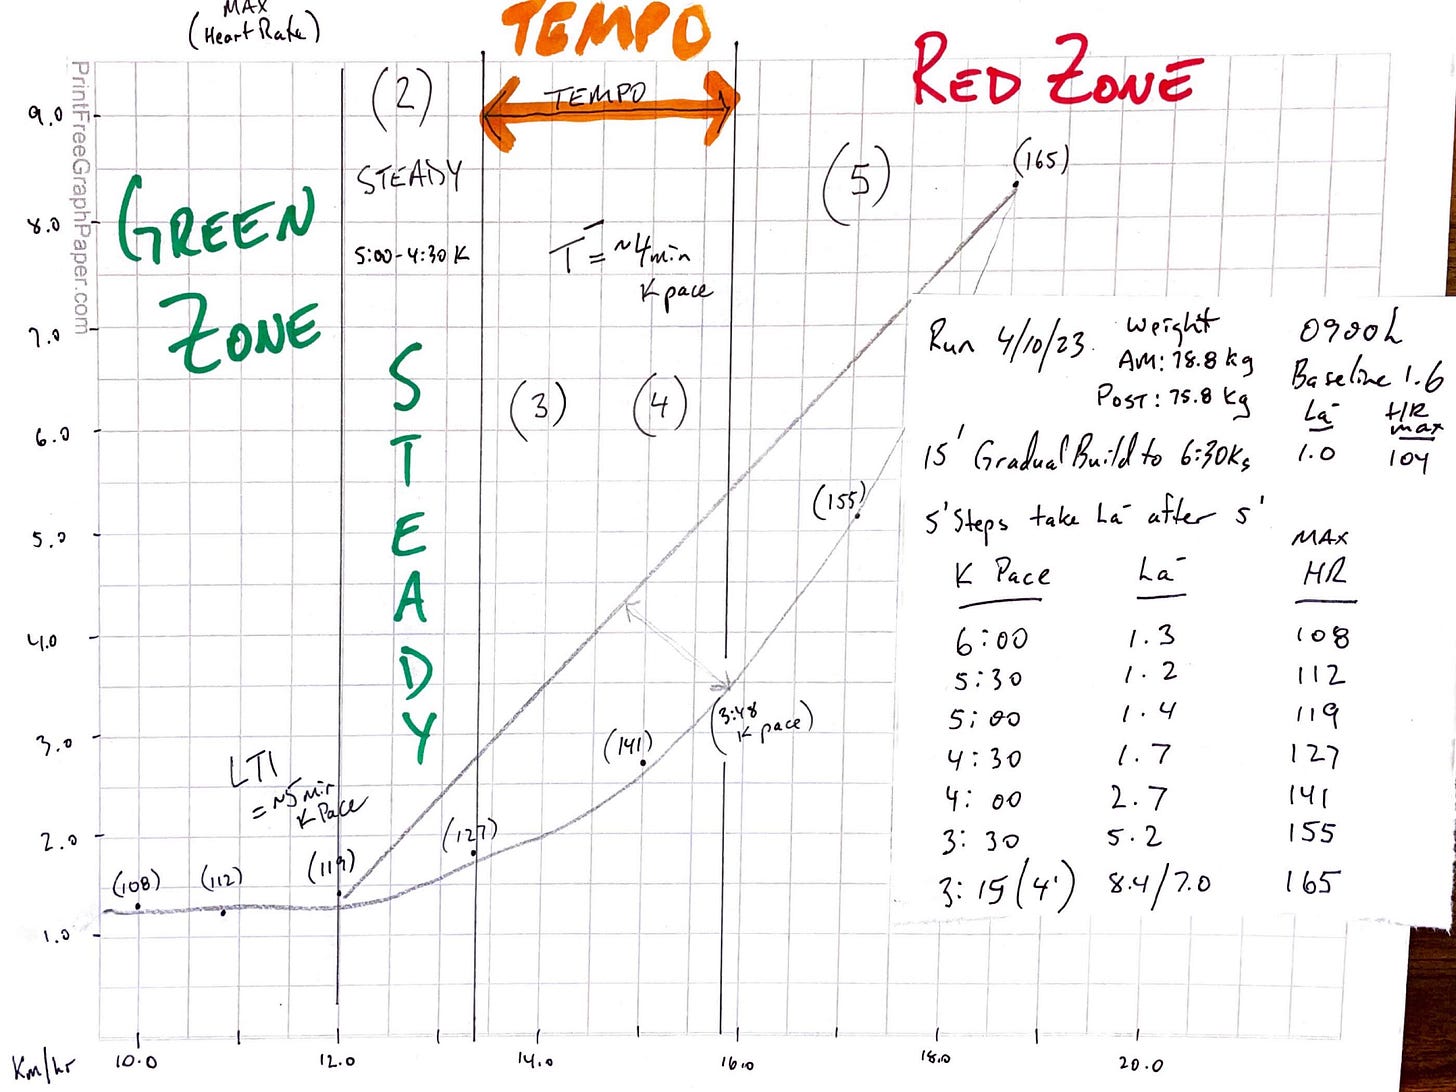 MAX
(Heart Rate)
TEMPO
RED ZONE
PrintFreeGraphPaper.com
9.0
8.0
7.0
6.0
5.0
4.0
3.0
2.0
1.0
GREEN
ZONE
(2)
STEADY
5:00-4:30 K
STEADY
TEMPO
T = ~4min
K pace
(3)
(4)
(5)
(165)
(155)
(141)
(3:48
K pace)
(127)
(119)
(112)
(108)
LT1
= ~5min
K Pace
Km/hr
10.0
12.0
14.0
16.0
18.0
20.0
Run 4/10/23.
Weight
AM: 78.8 kg
Post: 75.8 kg
0900h
Baseline 1.6
La-
HR
max
15' Gradual Build to 6:30Ks 1.0 104
5' Steps take La- after 5'
MAX
K Pace La- HR
6:00 1.3 108
5:30 1.2 112
5:00 1.4 119
4:30 1.7 127
4:00 2.7 141
3:30 5.2 155
3:15 (4') 8.4/7.0 165